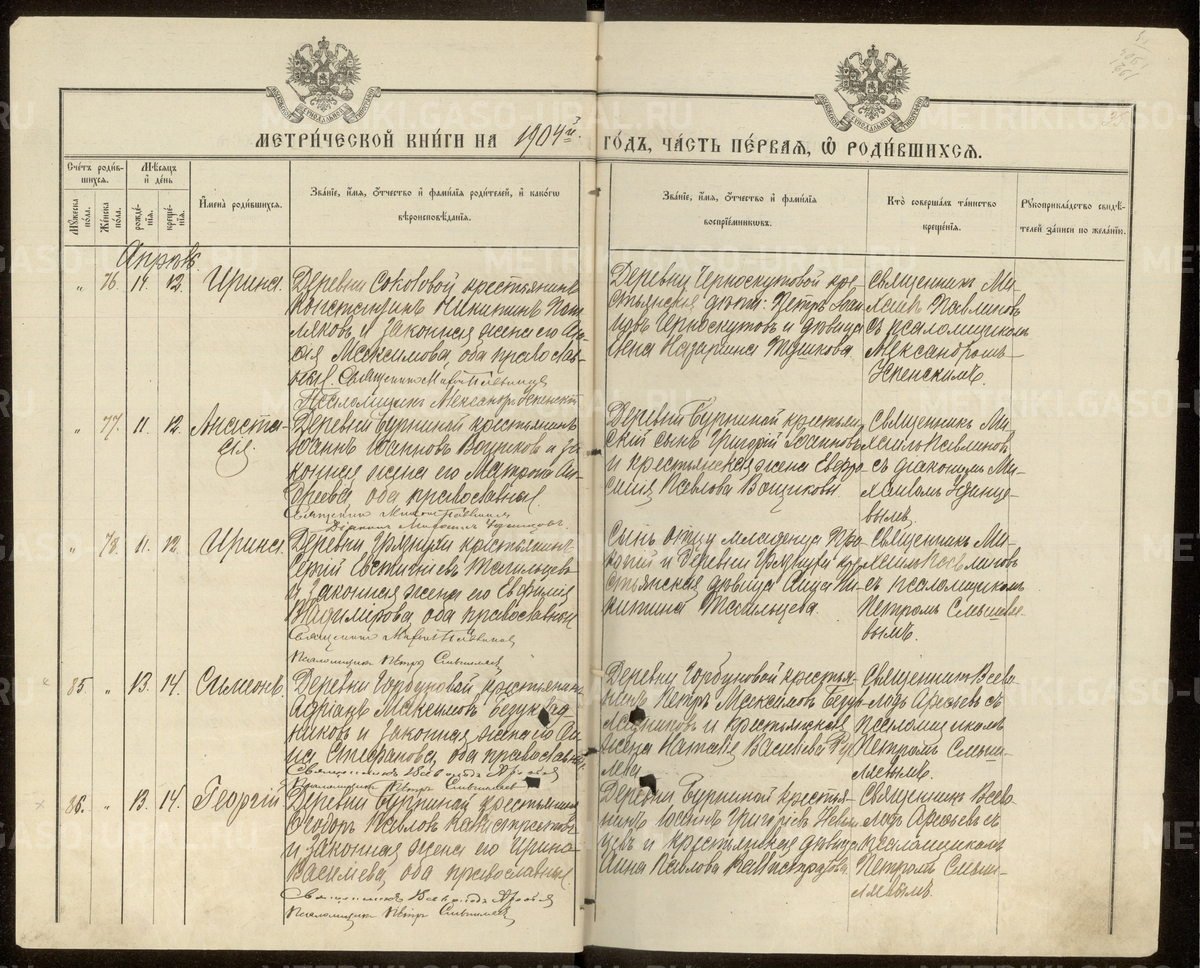 МЕТРИ́ЧЕСКОЙ КНИ́ГИ НА 1904й. ГО́ДЪ, ЧА́СТЬ ПЕ́РВАЯ, Ѡ РОДИ́ВШИХСЯ.
Сче́тъ роди́в-
шихся.
Му́жеска по́ла.
Же́нска по́ла.
Мѣ́сяцъ
и́ де́нь
рожде́-
нія.
креще́-
нія.
И́мена́ роди́вшихся.
Зва́ніе, и́мя, о́тчество и́ фами́лія роди́телей, и́ како́гѡ
вѣроисповѣ́данія.
Зва́ніе, и́мя, о́тчество и́ фами́лія
воспріе́мниковъ.
Кто̀ соверша́лъ та́инство
креще́нія.
Рукоприкла́дство свидѣ́-
телей за́писи по жела́нію.
Апрѣль
" 76. 11. 12. Ирина.
Деревни Соколовой крестьянинъ
Константинъ Никитинъ
и законная жена его
Максимова, оба православ-
ные. Священникъ Михаилъ Павлиновъ
Псаломщикъ Александръ Успенскій
Деревни Черноскутовой кре-
стьянскія дѣти: Петръ
Черноскутовъ и дѣвица
Анна Назарова
Священникъ Ми-
хаилъ Павлиновъ
съ псаломщикомъ
Александромъ
Успенскимъ.
" 77. 11. 12. Анаста-
сія.
Деревни Бурниной крестьянинъ
Іоаннъ Іоанновъ Вощиковъ и за-
конная жена его Матрона Ан-
дреева, оба православные.
Священникъ Михаилъ Павлиновъ
Діаконъ Михаилъ Удинцевъ.
Деревни Бурниной крестьян-
скій сынъ Григорій Іоанновъ
и крестьянская жена Евфро-
синія Павлова Вощиковы.
Священникъ Ми-
хаилъ Павлиновъ
съ діакономъ Ми-
хаиломъ Удинце-
вымъ.
" 78. 11. 12. Ирина.
Деревни Грязнухи крестьянинъ
Сергій Евстигнѣевъ Тагильцевъ
и законная жена его Евфимія
Владимірова, оба православные
Священникъ Михаилъ Павлиновъ
Псаломщикъ Петръ Смышляевъ
Сынъ отца младенца
и деревни Грязнухи кре-
стьянская дѣвица Ни-
китина Тагильцева.
Священникъ Ми-
хаилъ Павлиновъ
съ псаломщикомъ
Петромъ Смышляе-
вымъ.
85. " 13. 14. Симеонъ.
Деревни Горбуновой крестьянинъ
Адріанъ Максимовъ Безукла-
дниковъ и законная жена его Ан-
на Стефанова, оба православные
Священникъ Всеволодъ Арефьевъ
Псаломщикъ Петръ Смышляевъ
Деревни Горбуновой крестья-
нинъ Петръ Максимовъ Безук-
ладниковъ и крестьянская
жена Наталія Василіева
Священникъ Всево-
лодъ Арефьевъ съ
псаломщикомъ
Петромъ Смыш-
ляевымъ.
86. " 13. 14. Георгій
Деревни Бурниной крестьянинъ
Ѳеодоръ Павловъ Калистратовъ
и законная жена его Ирина
Василіева, оба православные.
Священникъ Всеволодъ Арефьевъ
Псаломщикъ Петръ Смышляевъ
Деревни Бурниной крестья-
нинъ Іоаннъ Григоріевъ
и крестьянская дѣвица
Анна Павлова Калистратова.
Священникъ Всево-
лодъ Арефьевъ съ
псаломщикомъ
Петромъ Смыш-
ляевымъ.
METRIKI.GASO-URAL.RU